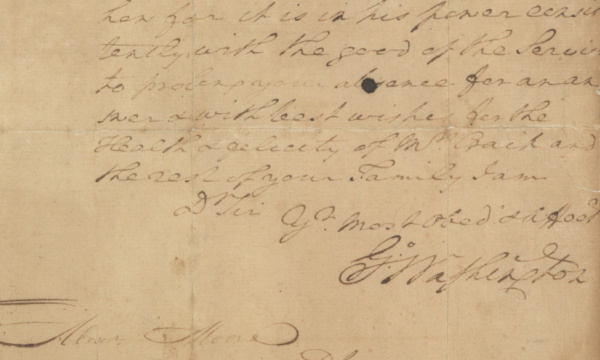 her for it is in his power consis
tently with the good of the Servic
to prolong your absence for an an
swer & with best wishes for the
Health & felicity of Mrs Craik and
the rest of your Family I am
Dr Sir Yr Most Obedt & Affect
Go Washington